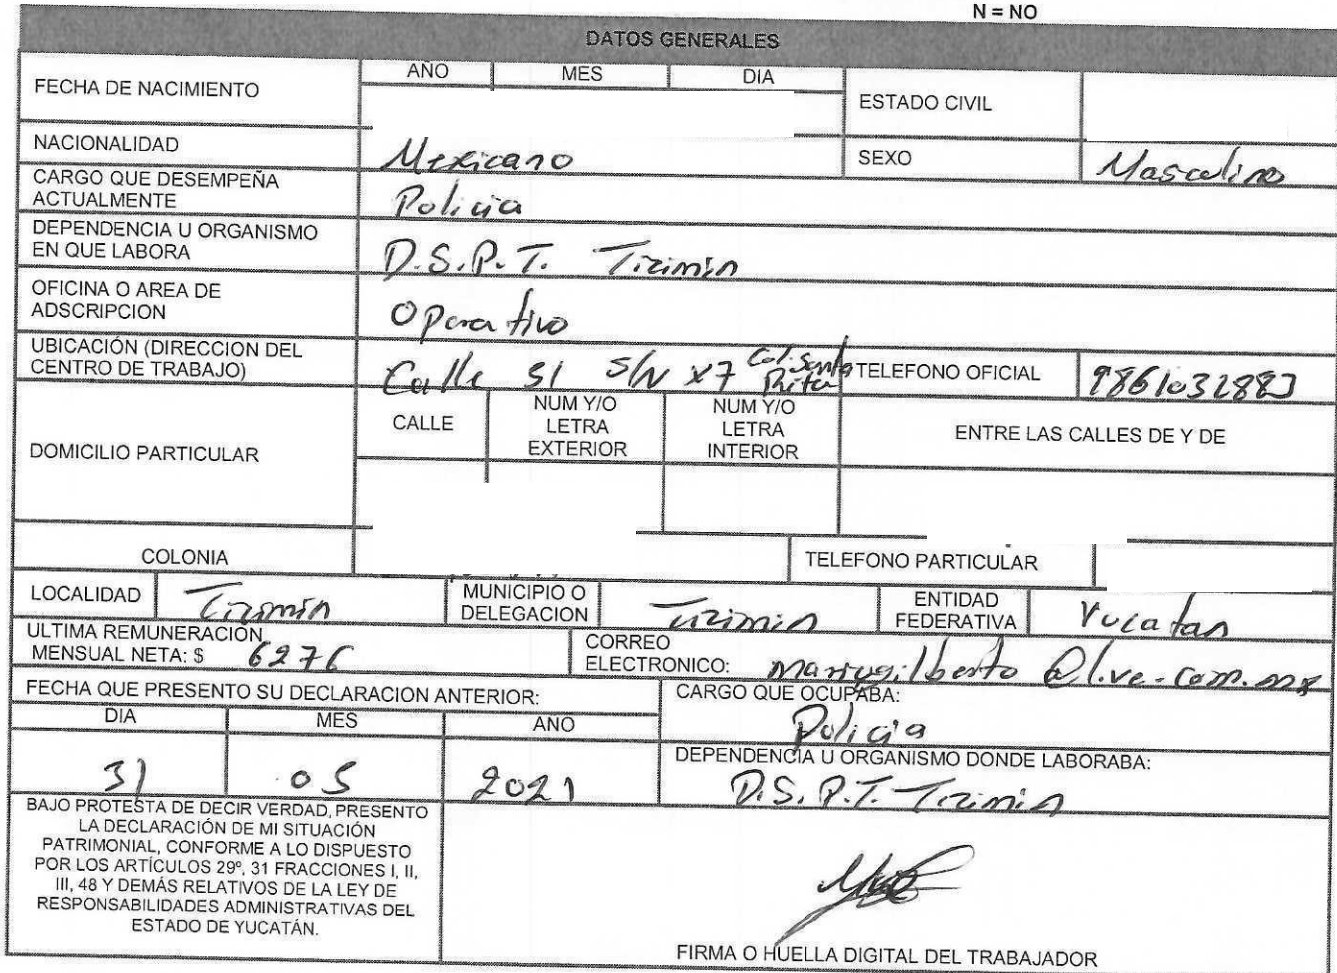 N = NO
DATOS GENERALES
FECHA DE NACIMIENTO
AÑO MES DIA
ESTADO CIVIL
NACIONALIDAD Mexicano SEXO Masculino
CARGO QUE DESEMPEÑA
ACTUALMENTE
Policia
DEPENDENCIA U ORGANISMO
EN QUE LABORA
D.S.P.T. Tizimin
OFICINA O AREA DE
ADSCRIPCION
Operativo
UBICACIÓN (DIRECCION DEL
CENTRO DE TRABAJO)
Calle 51 S/N x7 Col. Santa
Rita
TELEFONO OFICIAL 9861032883
DOMICILIO PARTICULAR
CALLE
NUM Y/O
LETRA
EXTERIOR
NUM Y/O
LETRA
INTERIOR
ENTRE LAS CALLES DE Y DE
COLONIA TELEFONO PARTICULAR
LOCALIDAD Tizimin
MUNICIPIO O
DELEGACION
Tizimin
ENTIDAD
FEDERATIVA
Yucatan
ULTIMA REMUNERACION
MENSUAL NETA: $ 6276
CORREO
ELECTRONICO:
FECHA QUE PRESENTO SU DECLARACION ANTERIOR:
DIA MES AÑO
31 05 2021
CARGO QUE OCUPABA:
Policia
DEPENDENCIA U ORGANISMO DONDE LABORABA:
D.S.P.T. Tizimin
BAJO PROTESTA DE DECIR VERDAD, PRESENTO
LA DECLARACIÓN DE MI SITUACIÓN
PATRIMONIAL, CONFORME A LO DISPUESTO
POR LOS ARTÍCULOS 29º, 31 FRACCIONES I, II,
III, 48 Y DEMÁS RELATIVOS DE LA LEY DE
RESPONSABILIDADES ADMINISTRATIVAS DEL
ESTADO DE YUCATÁN.
FIRMA O HUELLA DIGITAL DEL TRABAJADOR